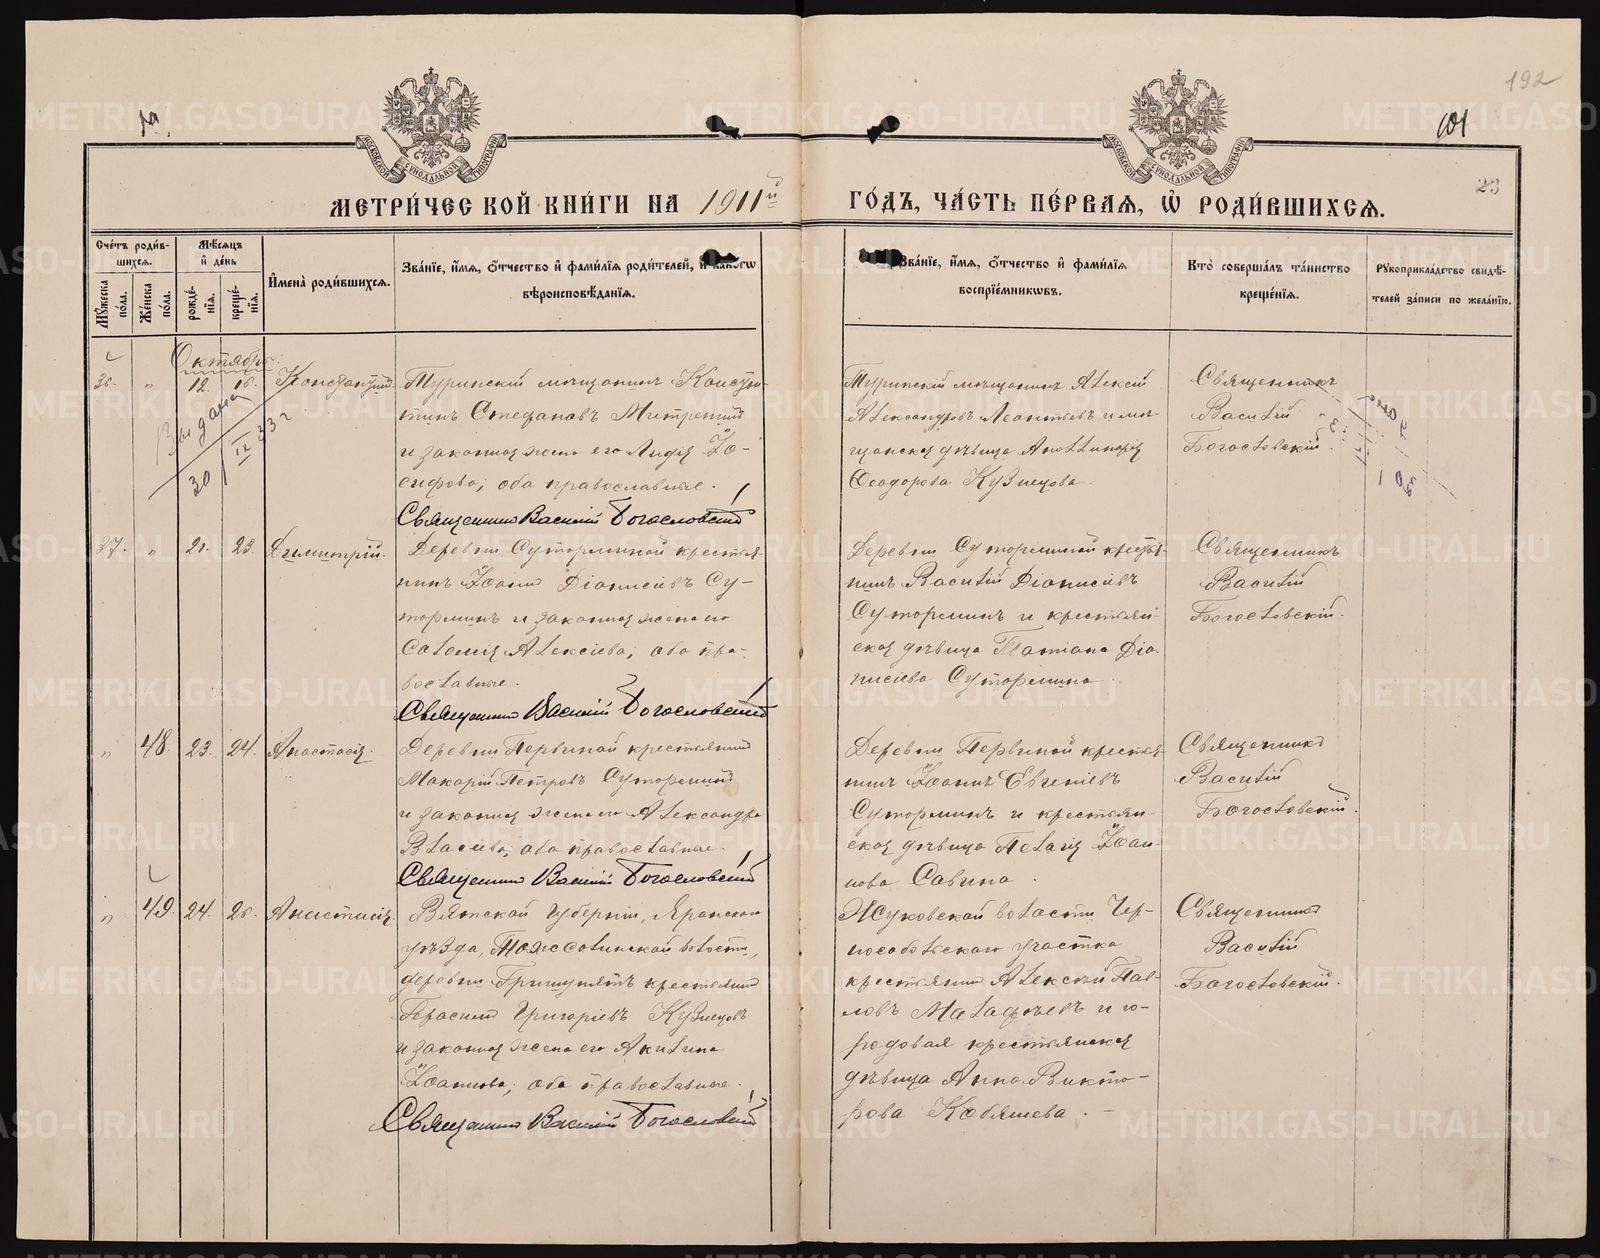 192
101
23
МОСКОВСКОЙ СѴНОДАЛЬНОЙ ТИПОГРАФІИ
МОСКОВСКОЙ СѴНОДАЛЬНОЙ ТИПОГРАФІИ
МЕТРИ́ЧЕСКОЙ КНИ́ГИ НА 1911й
ГО́ДЪ, ЧА́СТЬ ПЕ́РВАЯ, Ѡ РОДИ́ВШИХСЯ.
Сче́тъ роди́в-
шихся.
Мꙋ́жеска по́ла.
Же́нска по́ла.
Мѣ́сяцъ
и́ де́нь
рожде́-
нія.
креще́-
нія.
И҆мена̀ роди́вшихся.
Зва́ніе, и́мя, ѻ҆́тчество и҆ фами́лія роди́телей, и҆ како́гѡ
вѣроисповѣ́данія.
Зва́ніе, и́мя, ѻ҆́тчество и҆ фами́лія
воспріе́мникѡвъ.
Кто̀ соверша́лъ та́инство
креще́нія.
Рꙋкоприкла́дство свидѣ́-
телей за́писи по жела́нію.
Октябрь.
36. " 12 16. Константинъ.
Туринскій мѣщанинъ Констан-
тинъ Стефановъ Митрекинъ
и законная жена его Лидія Іо-
сифова, оба православные.
Священникъ Василій Богословскій
Туринскій мѣщанинъ Алексій
Александровъ Леонтьевъ и мѣ-
щанская дѣвица Апполинарія
Ѳеодорова Кузнецова.
Священникъ
Василій
Богословскій.
Выдана
30/IV 33 г
37. " 21. 23. Димитрій.
Деревни Суторминой крестья-
нинъ Іоаннъ Діонисіевъ Су-
торминъ и законная жена его
Саломія Алексіева, оба пра-
вославные.
Священникъ Василій Богословскій
Деревни Суторминой крестья-
нинъ Василій Діонисіевъ
Суторминъ и крестьян-
ская дѣвица Татіана Діо-
нисіева Сутормина.
Священникъ
Василій
Богословскій.
" 48. 23. 24. Анастасія.
Деревни Первиной крестьянинъ
Макарій Петровъ Суторминъ
и законная жена его Александра
Власіева, оба православные.
Священникъ Василій Богословскій
Деревни Первиной крестья-
нинъ Іоаннъ Евгеніевъ
Суторминъ и крестьян-
ская дѣвица Пелагія Іоан-
нова Савина.
Священникъ
Василій
Богословскій.
" 49. 24. 26. Анастасія.
Вятской губерніи, Яранскаго
уѣзда, волости,
деревни крестьянинъ
Герасимъ Григоріевъ Кузнецовъ
и законная жена его Акилина
Іоаннова, оба православные.
Священникъ Василій Богословскій
Жуковской волости Чер-
участка
крестьянинъ Алексѣй Пав-
ловъ Малафѣевъ и го-
родовая крестьянская
дѣвица Анна Викто-
рова Кобяшева.
Священникъ
Василій
Богословскій.